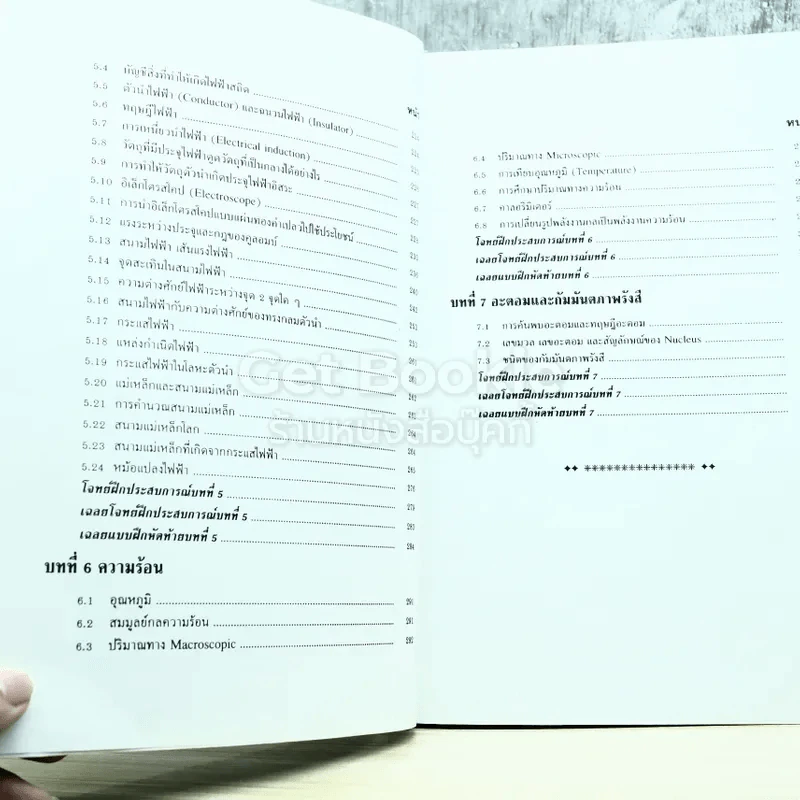 5.4 บัญชีสิ่งที่ทำให้เกิดไฟฟ้าสถิต
5.5 ตัวนำไฟฟ้า (Conductor) และฉนวนไฟฟ้า (Insulator)
5.6 ทฤษฎีไฟฟ้า
5.7 การเหนี่ยวนำไฟฟ้า (Electrical induction)
5.8 วัตถุที่มีประจุไฟฟ้าดูดวัตถุที่เป็นกลางได้อย่างไร
5.9 การทำให้วัตถุตัวนำเกิดประจุไฟฟ้าอิสระ
5.10 อิเล็กโตรสโคป (Electroscope)
5.11 การนำอิเล็กโตรสโคปแบบแผ่นทองคำเปลวไปใช้ประโยชน์
5.12 แรงระหว่างประจุและกฎของคูลอมน์
5.13 สนามไฟฟ้า เส้นแรงไฟฟ้า
5.14 จุดสะเทินในสนามไฟฟ้า
5.15 ความต่างศักย์ไฟฟ้าระหว่างจุด 2 จุดใด ๆ
5.16 สนามไฟฟ้ากับความต่างศักย์ของทรงกลมตัวนำ
5.17 กระแสไฟฟ้า
5.18 แหล่งกำเนิดไฟฟ้า
5.19 กระแสไฟฟ้าในโลหะตัวนำ
5.20 แม่เหล็กและสนามแม่เหล็ก
5.21 การคำนวณสนามแม่เหล็ก
5.22 สนามแม่เหล็กโลก
5.23 สนามแม่เหล็กที่เกิดจากกระแสไฟฟ้า
5.24 หม้อแปลงไฟฟ้า
โจทย์ฝึกประสบการณ์บทที่ 5
เฉลยโจทย์ฝึกประสบการณ์บทที่ 5
เฉลยแบบฝึกหัดท้ายบทที่ 5
บทที่ 6 ความร้อน
6.1 อุณหภูมิ
6.2 สมมูลย์กลความร้อน
6.3 ปริมาณทาง Macroscopic
6.4 ปริมาณทาง Microscopic
6.5 การเทียบอุณหภูมิ (Temperature)
6.6 การศึกษาปริมาณทางความร้อน
6.7 คาลอริมิเตอร์
6.8 การเปลี่ยนรูปพลังงานกลเป็นพลังงานความร้อน
โจทย์ฝึกประสบการณ์บทที่ 6
เฉลยโจทย์ฝึกประสบการณ์บทที่ 6
เฉลยแบบฝึกหัดท้ายบทที่ 6
บทที่ 7 อะตอมและกัมมันตภาพรังสี
7.1 การค้นพบอะตอมและทฤษฎีอะตอม
7.2 เลขมวล เลขอะตอม และสัญลักษณ์ของ Nucleus
7.3 ชนิดของกัมมันตภาพรังสี
โจทย์ฝึกประสบการณ์บทที่ 7
เฉลยโจทย์ฝึกประสบการณ์บทที่ 7
เฉลยแบบฝึกหัดท้ายบทที่ 7
ร้านหนังสือบุ๊คก